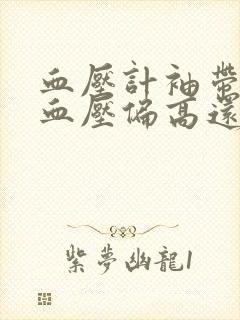 血壓計袖帶
血壓偏高還
紫夢幽龍1